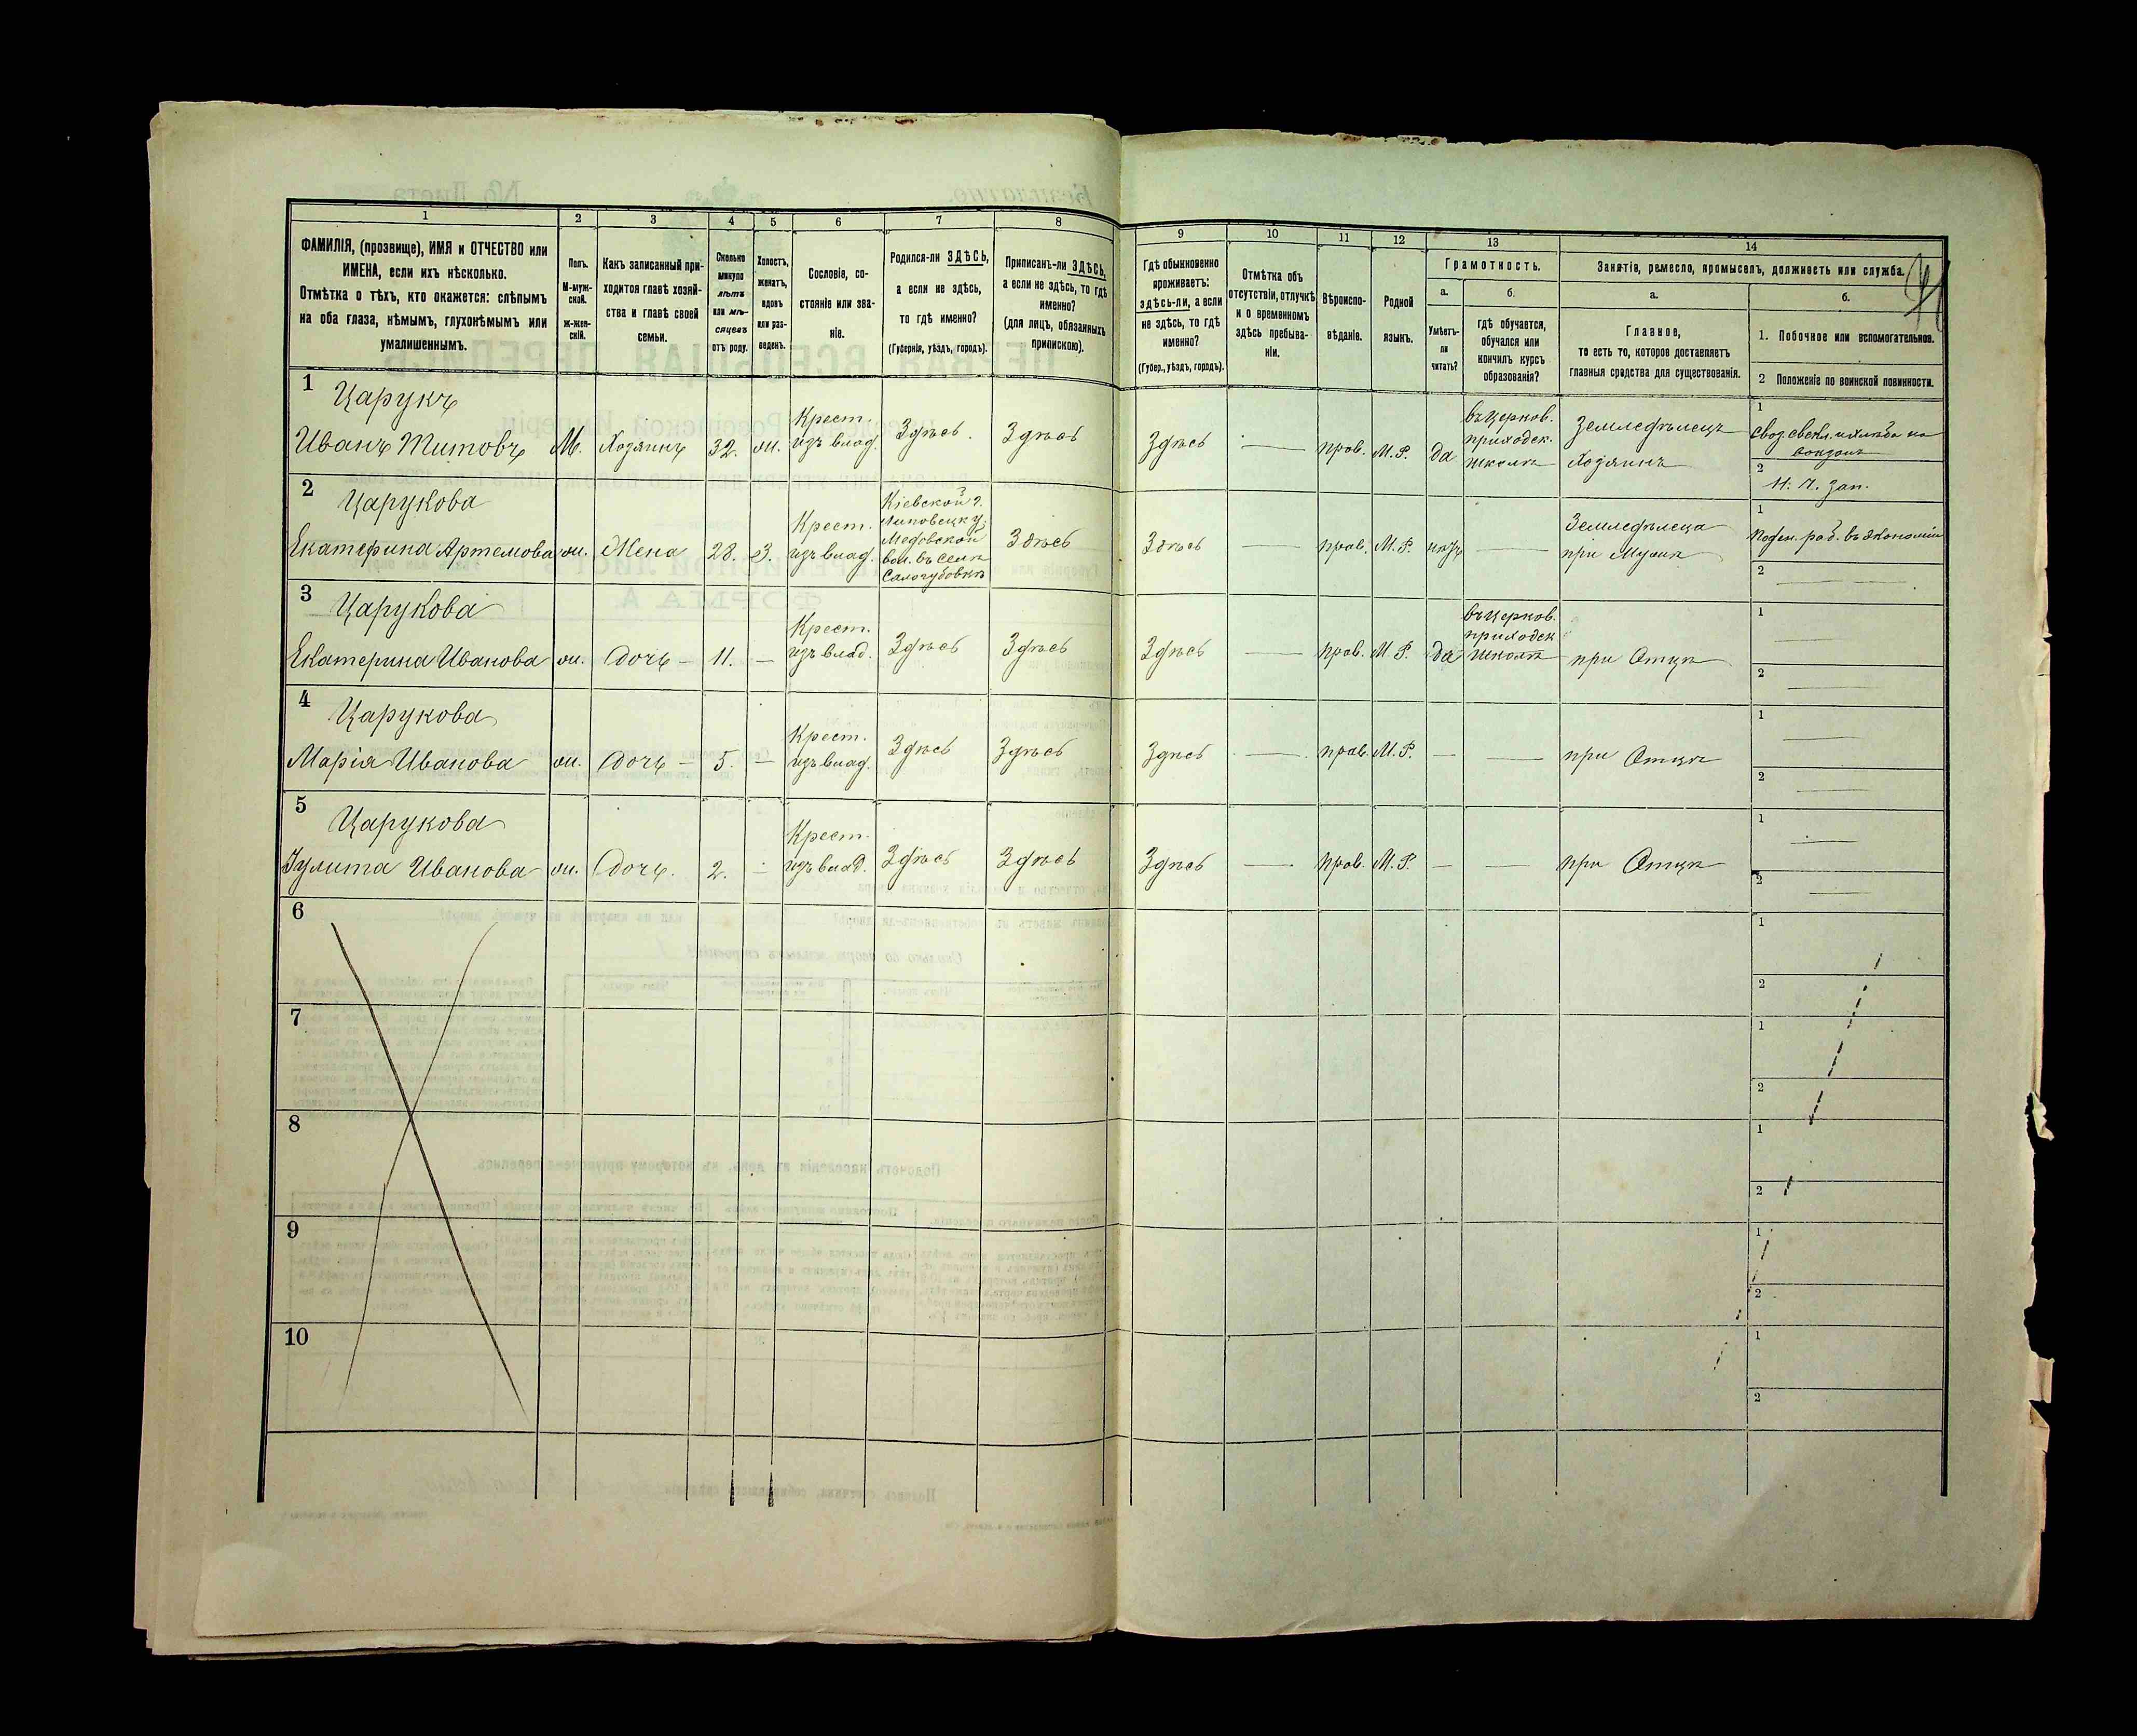 1
2
3
4
5
6
7
8
9
10
11
12
13
14
ФАМИЛІЯ, (прозвище), ИМЯ и ОТЧЕСТВО или
ИМЕНА, если ихъ нѣсколько.
Отмѣтка о тѣхъ, кто окажется: слѣпымъ
на оба глаза, нѣмымъ, глухонѣмымъ или
умалишеннымъ.
Полъ.
М-муж-
ской.
ж-жен-
скій.
Какъ записанный при-
ходится главѣ хозяй-
ства и главѣ своей
семьи.
Сколько
минуло
лѣтъ
или мѣ-
сяцевъ
отъ роду.
Холостъ,
женатъ,
вдовъ
или раз-
веденъ.
Сословіе, со-
стояніе или зва-
ніе.
Родился-ли ЗДѢСЬ,
а если не здѣсь,
то гдѣ именно?
(Губернія, уѣздъ, городъ).
Приписанъ-ли ЗДѢСЬ,
а если не здѣсь, то гдѣ
именно?
(для лицъ, обязанныхъ
припискою).
Гдѣ обыкновенно
проживаетъ:
здѣсь-ли, а если
не здѣсь, то гдѣ
именно?
(Губер., уѣздъ, городъ).
Отмѣтка объ
отсутствіи, отлучкѣ
и о временномъ
здѣсь пребыва-
ніи.
Вѣроиспо-
вѣданіе.
Родной
языкъ.
Грамотность.
а.
Умѣетъ-
ли
читать?
б.
гдѣ обучается,
обучался или
кончилъ курсъ
образованія?
Занятіе, ремесло, промыселъ, должность или служба.
а.
Главное,
то есть то, которое доставляетъ
главныя средства для существованія.
б.
1. Побочное или вспомогательное.
2 Положеніе по воинской повинности.
1
Царукъ
Иванъ Титовъ
М.
Хозяинъ
32.
ж.
Крест.
изъ влад.
Здѣсь.
Здѣсь
Здѣсь
—
прав.
М.Р.
да
въ церков.
приходск.
школѣ
Земледѣлецъ
Хозяинъ
1
2
2
Царукова
Екатерина Артемова
ж.
Жена
28.
З.
Крест.
изъ влад.
Кіевской г.
Липовецк у.
Медовской
вол. въ селѣ
Здѣсь
Здѣсь
—
прав.
М.Р.
нѣтъ
—
Земледѣлеца
при Мужѣ
1
Поден. раб. въ экономіи
2
— —
3
Царукова
Екатерина Иванова
ж.
Дочь —
11.
—
Крест.
изъ влад.
Здѣсь
Здѣсь
Здѣсь
—
прав.
М.Р.
да
въ церков.
приходск
школѣ
при Отцѣ
1
—
2
—
4
Царукова
Марія Иванова
ж.
Дочь —
5.
—
Крест.
изъ влад.
Здѣсь
Здѣсь
Здѣсь
—
прав.
М.Р.
—
—
при Отцѣ
1
—
2
—
5
Царукова
Іулита Иванова
ж.
Дочь.
2.
—
Крест.
изъ влад.
Здѣсь
Здѣсь
Здѣсь
—
прав.
М.Р.
—
—
при Отцѣ
1
—
2
—
6
1
2
7
1
2
8
1
2
9
1
2
10
1
2